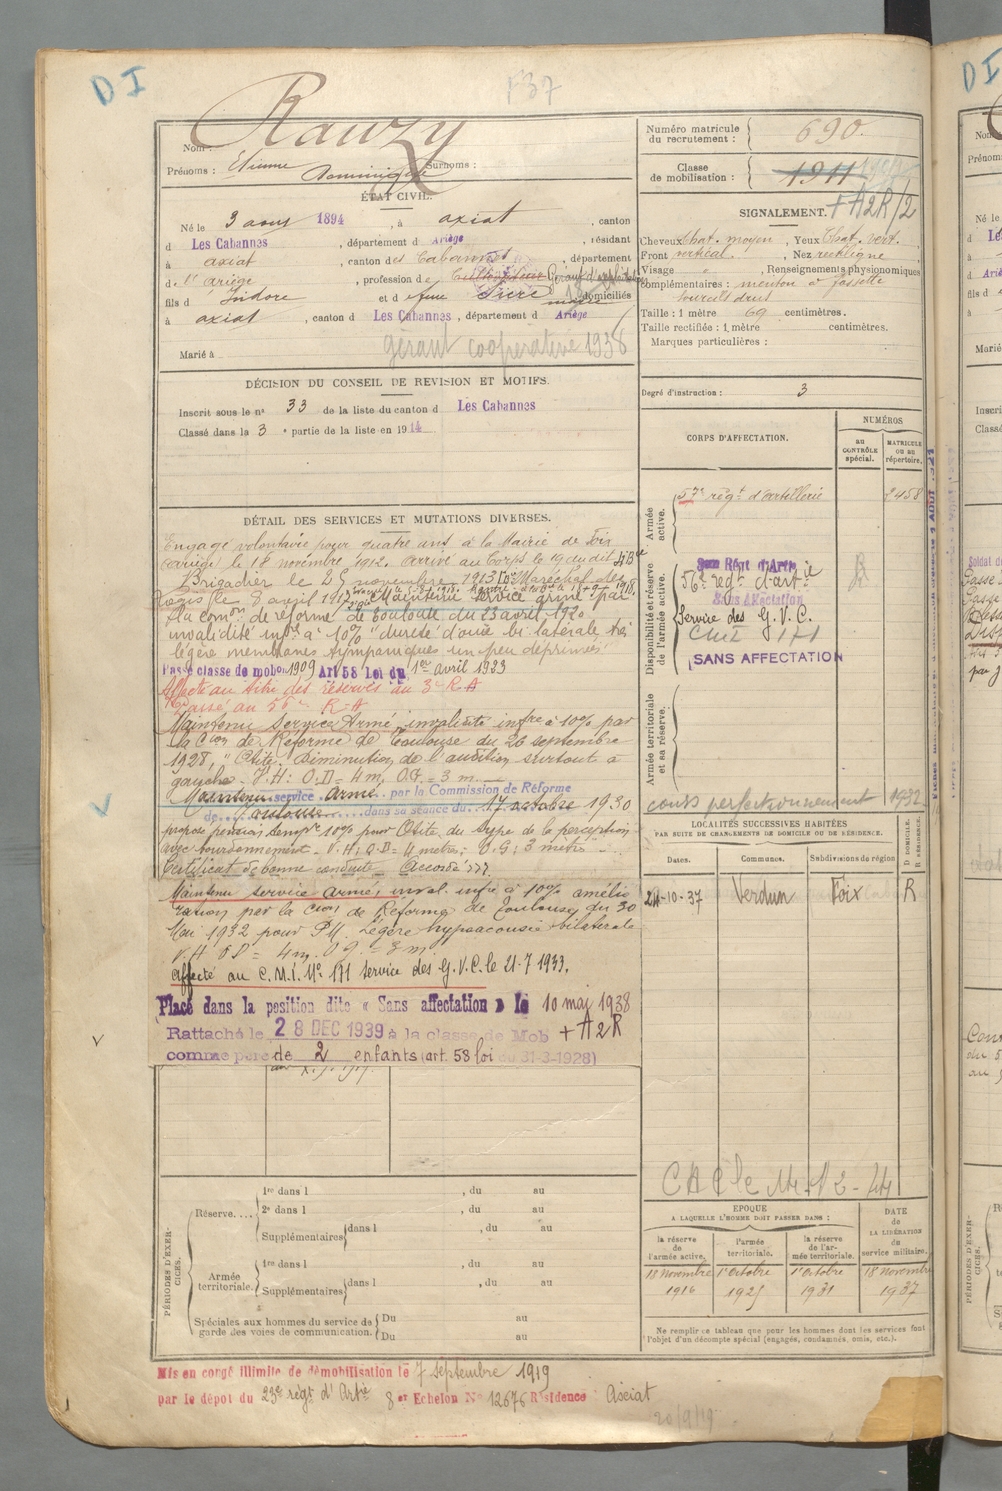 DI
F37
Rauzy
Nom :
Prénoms : Etienne Dominique Surnoms :
ÉTAT CIVIL.
Né le 3 aout 1894, à axiat, canton
d Les Cabannes, département d Ariège, résidant
à axiat, canton des Cabannes, département
de l'ariège, profession de Cultivateur
fils d Isidore et d feue domiciliés
à axiat, canton d Les Cabannes, département d Ariège
gérant coopérative 1938
Marié à
DÉCISION DU CONSEIL DE REVISION ET MOTIFS.
Inscrit sous le n° 33 de la liste du canton d Les Cabannes
Classé dans la 3e partie de la liste en 1914
DÉTAIL DES SERVICES ET MUTATIONS DIVERSES.
Engagé volontaire pour quatre ans à la Mairie de Foix
(ariège) le 18 novembre 1912. arrivé au Corps le 19 du dit
Brigadier le 25 novembre 1913 Maréchal des
Logis le 8 avril Maintenu service armé par
la comon de réforme de Toulouse du 23 avril 1920
invalidité infre à 10% "dureté d'ouïe bi latérale très
légère membranes tympaniques un peu déprimées"
Passé classe de mobon 1909 Art 58 Loi du 1er avril 1923
Affecté au titre des réserves au 3e R.A
Passé au 56e R.A
Maintenu Service Armé invalidité infre à 10% par
la Cion de Réforme de Toulouse du 26 septembre
1928, "Otite. Diminution de l'audition surtout à
gauche. V.H: O.D = 4 m, O.G = 3 m.
Maintenu service armé par la Commission de Réforme
de Toulouse dans sa séance du 17 octobre 1930
propose pension 10% pour Otite du type de la perception
avec bourdonnement. V.H: O.D = 4 mètres; O.G: 3 mètres
Certificat de bonne conduite Accordé
Maintenu service armé, inval. infre à 10% amélio
ration par la Cion de Réforme de Toulouse du 30
Mai 1932 pour Légère hypoacousie bilatérale
V.H OD = 4m. OG = 3m
affecté au C.M.I. N° 171 service des G.V.C. le 21-7 1933.
Placé dans la position dite « Sans affectation » le 10 mai 1938
Rattaché le 28 DEC 1939 à la classe de Mob + A2R
comme père de 2 enfants (art. 58 loi du 31-3-1928)
PÉRIODES D'EXERCICES.
Réserve....
1re dans l , du au
2e dans l , du au
Supplémentaires dans l , du au
Armée territoriale.
1re dans l , du au
Supplémentaires dans l , du au
Spéciales aux hommes du service de garde des voies de communication.
Du au
Du au
Mis en congé illimité de démobilisation le 7 Septembre 1919
par le dépôt du 23e régt d'Artie 8er Echelon N° 12676 Résidence Axiat
20/9/19
Numéro matricule
du recrutement : 690.
Classe
de mobilisation : 1911
+ A2R/2
SIGNALEMENT.
Cheveux Chat. moyen, Yeux Chat. vert.
Front vertical, Nez rectiligne
Visage , Renseignements physionomiques
complémentaires : menton à fossette
sourcils drus
Taille : 1 mètre 69 centimètres.
Taille rectifiée : 1 mètre centimètres.
Marques particulières :
Degré d'instruction : 3
CORPS D'AFFECTATION.
NUMÉROS
au CONTRÔLE spécial.
MATRICULE OU AU répertoire.
Armée active.
57e régt d'artillerie 2458
Disponibilité et réserve de l'armée active.
56e regt d'artie
Sans Affectation
Service des G.V.C.
CMI 171
SANS AFFECTATION
Armée territoriale et sa réserve.
cours perfectionnement 1932
LOCALITÉS SUCCESSIVES HABITÉES
PAR SUITE DE CHANGEMENTS DE DOMICILE OU DE RÉSIDENCE.
D DOMICILE. R RÉSIDENCE.
Dates. Communes. Subdivisions de région
24-10-37 Verdun Foix R
EPOQUE
A LAQUELLE L'HOMME DOIT PASSER DANS :
DATE DE LA LIBÉRATION du service militaire.
la réserve de l'armée active.
l'armée territoriale.
la réserve de l'armée territoriale.
18 Novembre 1916
1er Octobre
1er Octobre 1931
18 novembre 1937
Ne remplir ce tableau que pour les hommes dont les services font
l'objet d'un décompte spécial (engagés, condamnés, omis, etc.).